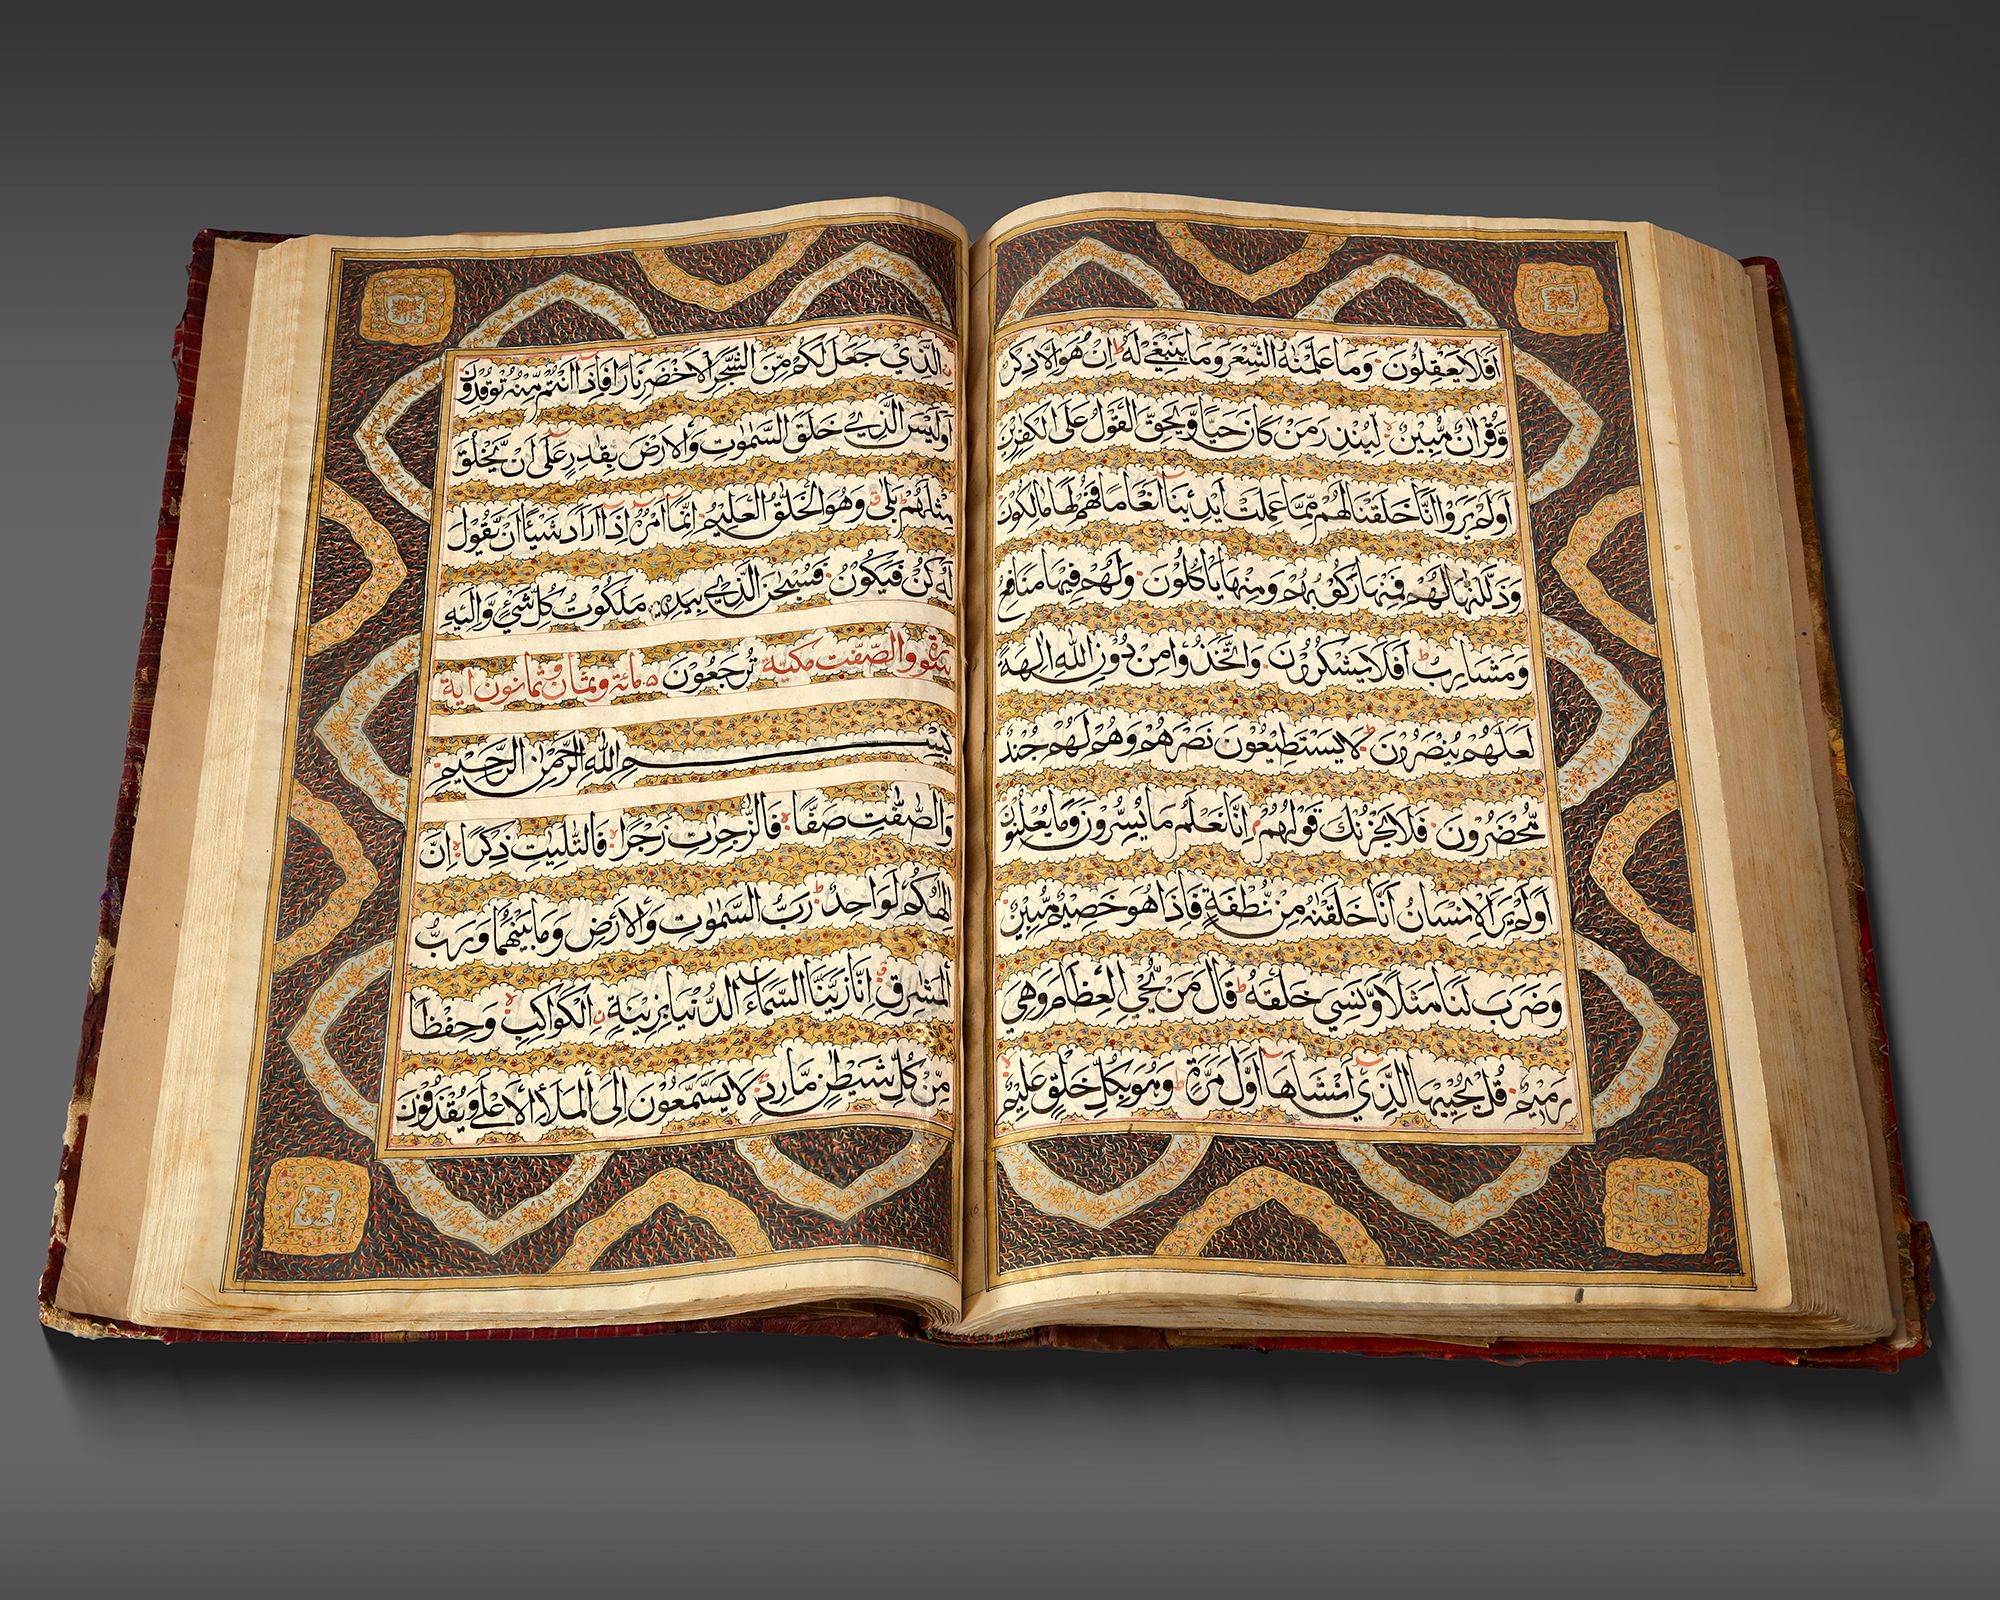 أَفَلَا يَعْقِلُونَ وَمَا عَلَّمْنٰهُ الشِّعْرَ وَمَا يَنْبَغِي لَهُ ط اِنْ هُوَ اِلَّا ذِكْرٌ
وَّقُرْاٰنٌ مُّبِيْنٌ لا لِّيُنْذِرَ مَنْ كَانَ حَيًّا وَّيَحِقَّ الْقَوْلُ عَلَى الْكٰفِرِيْنَ
اَوَلَمْ يَرَوْا اَنَّا خَلَقْنَا لَهُمْ مِّمَّا عَمِلَتْ اَيْدِيْنَا اَنْعَامًا فَهُمْ لَهَا مَالِكُوْنَ
وَذَلَّلْنٰهَا لَهُمْ فَمِنْهَا رَكُوْبُهُمْ وَمِنْهَا يَاْكُلُوْنَ وَلَهُمْ فِيْهَا مَنَافِعُ
وَمَشَارِبُ ط اَفَلَا يَشْكُرُوْنَ وَاتَّخَذُوْا مِنْ دُوْنِ اللّٰهِ اٰلِهَةً
لَعَلَّهُمْ يُنْصَرُوْنَ ط لَا يَسْتَطِيْعُوْنَ نَصْرَهُمْ وَهُمْ لَهُمْ جُنْدٌ
مُّحْضَرُوْنَ فَلَا يَحْزُنْكَ قَوْلُهُمْ م اِنَّا نَعْلَمُ مَا يُسِرُّوْنَ وَمَا يُعْلِنُوْنَ
اَوَلَمْ يَرَ الْاِنْسَانُ اَنَّا خَلَقْنٰهُ مِنْ نُّطْفَةٍ فَاِذَا هُوَ خَصِيْمٌ مُّبِيْنٌ
وَضَرَبَ لَنَا مَثَلًا وَّنَسِيَ خَلْقَهُ ط قَالَ مَنْ يُّحْيِ الْعِظَامَ وَهِيَ
رَمِيْمٌ قُلْ يُحْيِيْهَا الَّذِيْ اَنْشَاَهَا اَوَّلَ مَرَّةٍ ط وَهُوَ بِكُلِّ خَلْقٍ عَلِيْمٌ لا
الَّذِيْ جَعَلَ لَكُمْ مِّنَ الشَّجَرِ الْاَخْضَرِ نَارًا فَاِذَا اَنْتُمْ مِّنْهُ تُوْقِدُوْنَ
اَوَلَيْسَ الَّذِيْ خَلَقَ السَّمٰوٰتِ وَالْاَرْضَ بِقٰدِرٍ عَلٰى اَنْ يَّخْلُقَ
مِثْلَهُمْ ط بَلٰى ق وَهُوَ الْخَلّٰقُ الْعَلِيْمُ اِنَّمَا اَمْرُهُ اِذَا اَرَادَ شَيْئًا اَنْ يَّقُوْلَ
لَهُ كُنْ فَيَكُوْنُ فَسُبْحٰنَ الَّذِيْ بِيَدِهٖ مَلَكُوْتُ كُلِّ شَيْءٍ وَّاِلَيْهِ
سورة والصّٰفّٰت مكية تُرْجَعُوْنَ مائة وثمان وثمانون اية
بِسْمِ اللّٰهِ الرَّحْمٰنِ الرَّحِيْمِ
وَالصّٰفّٰتِ صَفًّا لا فَالزّٰجِرٰتِ زَجْرًا لا فَالتّٰلِيٰتِ ذِكْرًا لا اِنَّ
اِلٰهَكُمْ لَوَاحِدٌ ط رَبُّ السَّمٰوٰتِ وَالْاَرْضِ وَمَا بَيْنَهُمَا وَرَبُّ
الْمَشَارِقِ ط اِنَّا زَيَّنَّا السَّمَاءَ الدُّنْيَا بِزِيْنَةِ نِ الْكَوَاكِبِ لا وَحِفْظًا
مِّنْ كُلِّ شَيْطٰنٍ مَّارِدٍ لَا يَسَّمَّعُوْنَ اِلَى الْمَلَاِ الْاَعْلٰى وَيُقْذَفُوْنَ